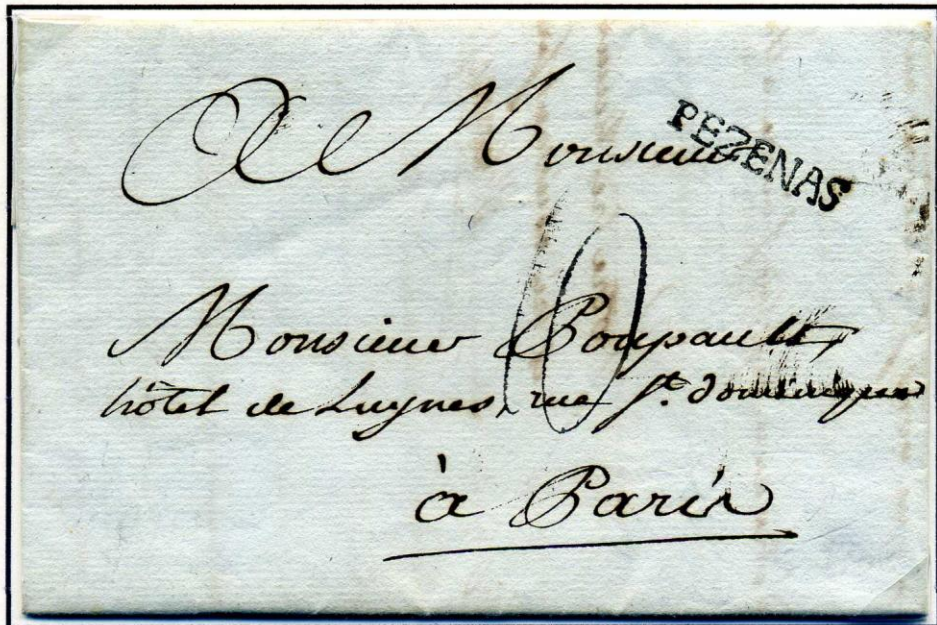 A Monsieur
PEZENAS
10
Monsieur Poupault,
hôtel de Luynes, rue St. dominique
à Paris